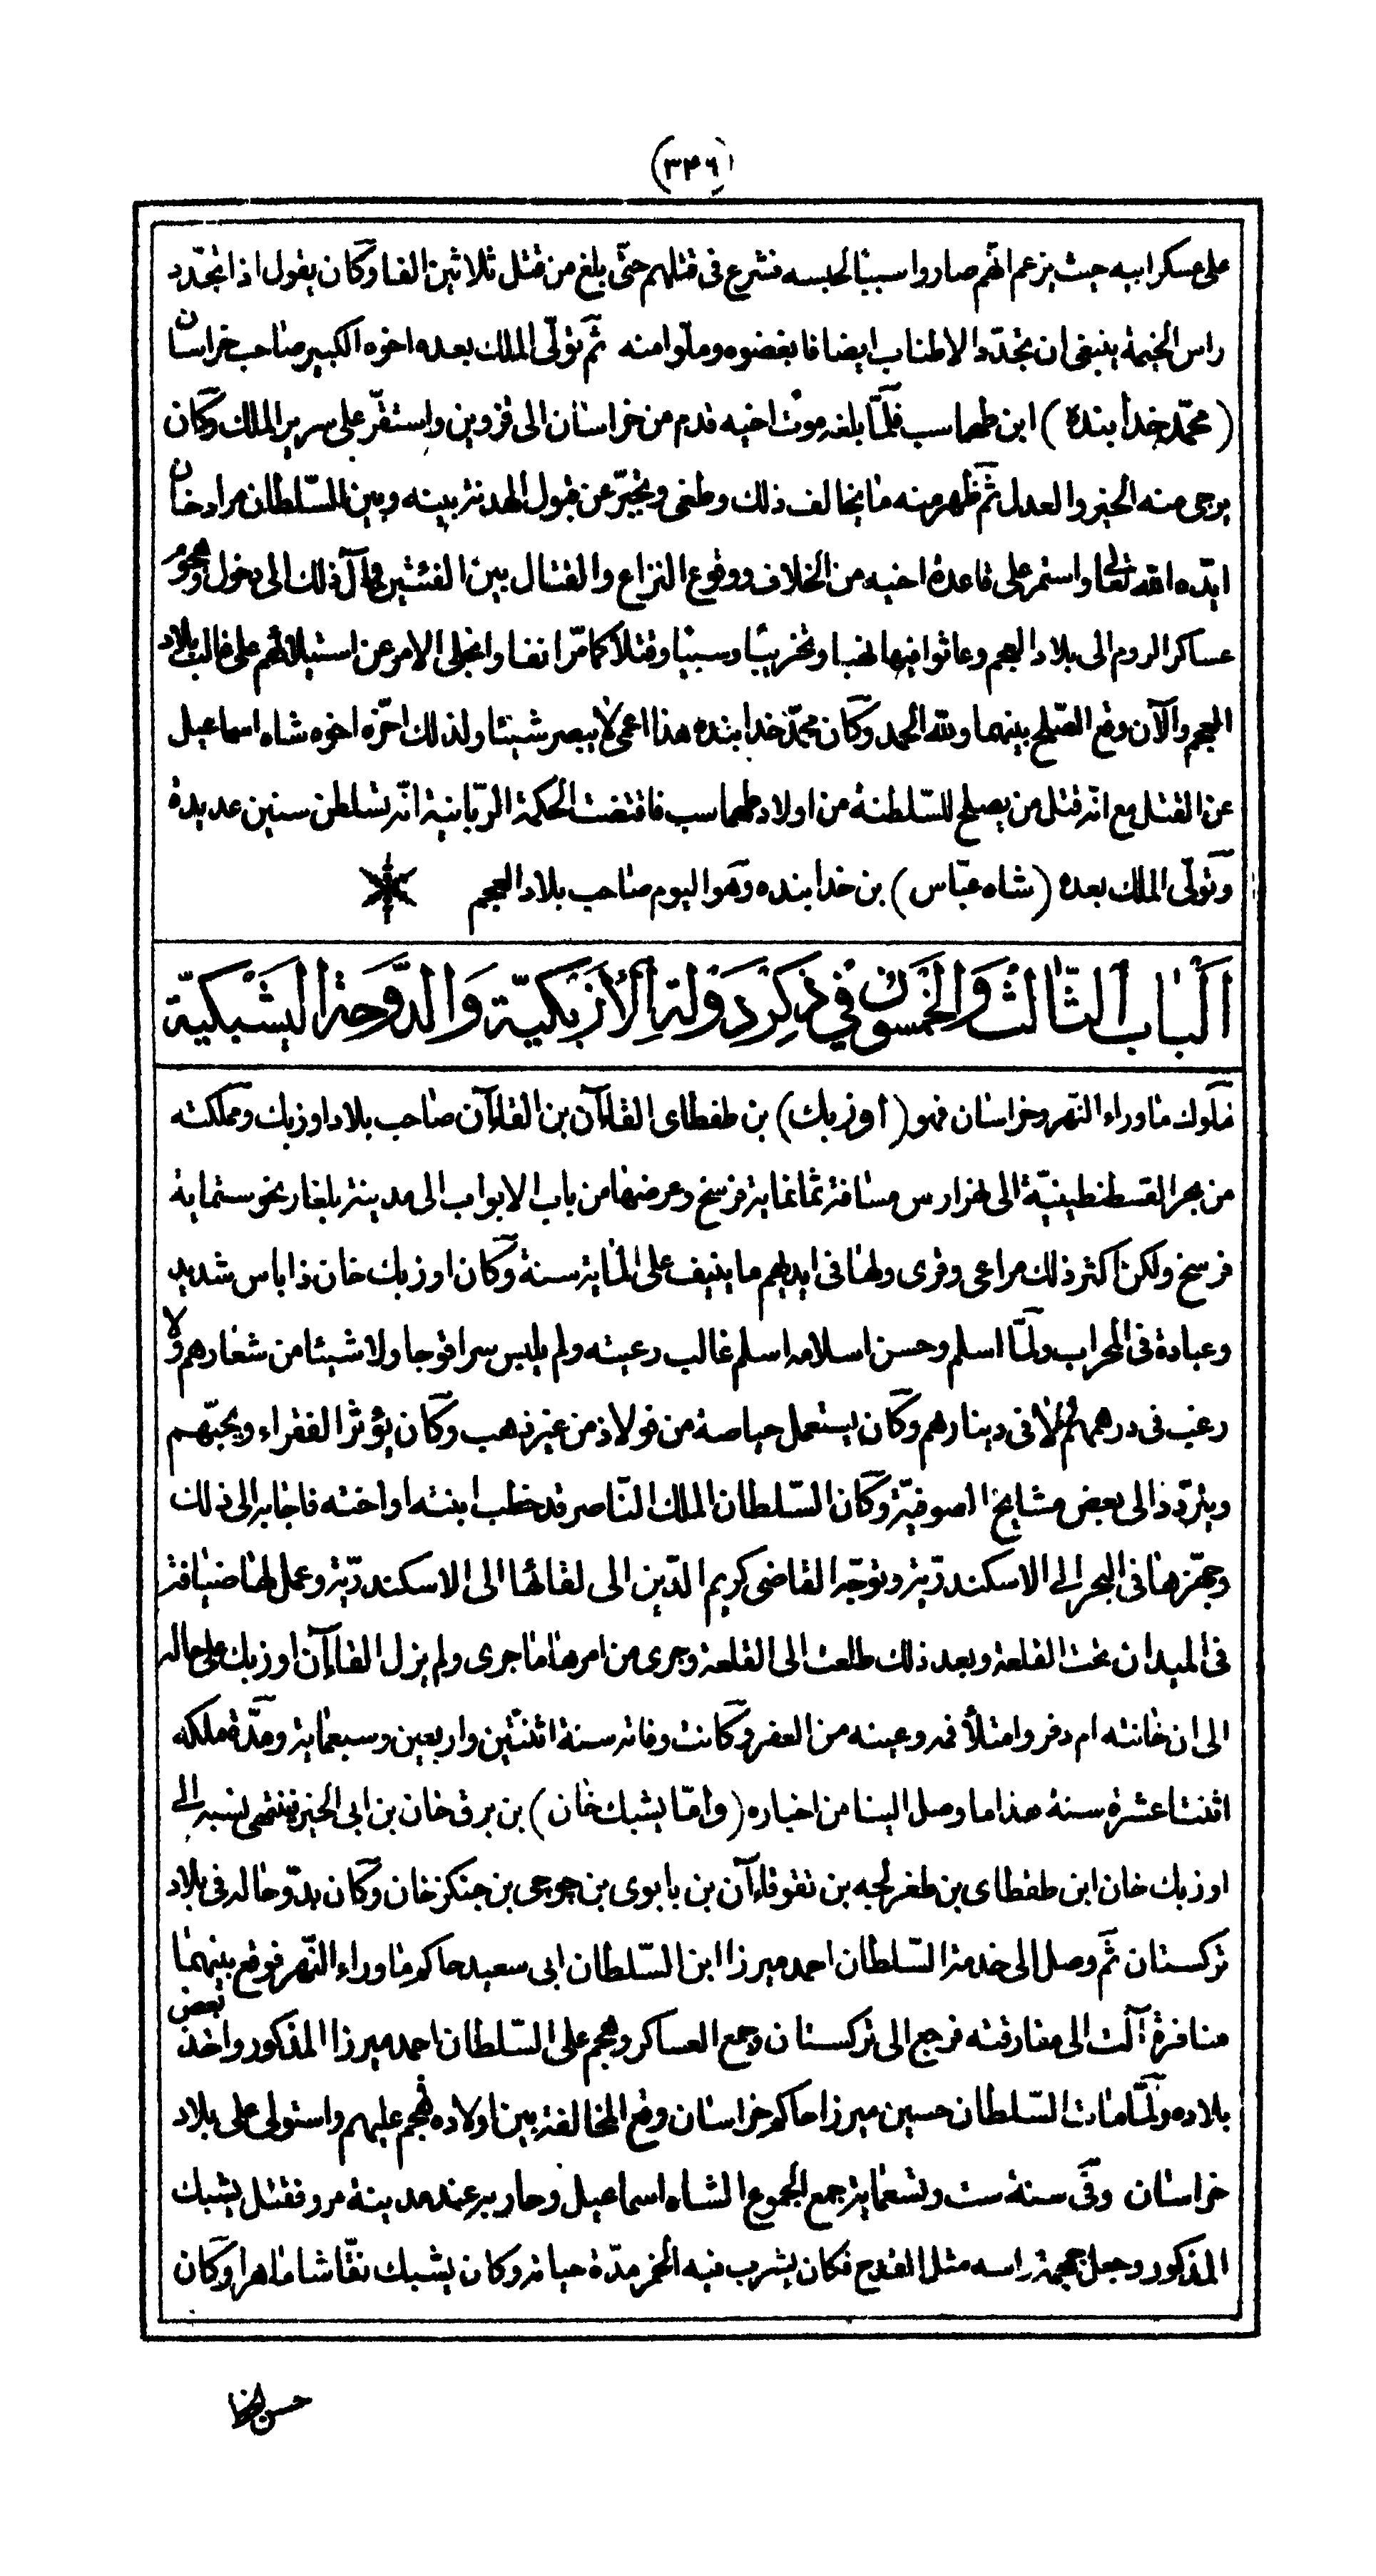 (٣٤٦)
على عسكر ابيه حيث يزعم انهم صاروا سببا لحبسه فشرع فى قتلهم حتى بلغ من قتل ثلاثين الفا وكان يقول اذا تجدد
راس الخيمة ينبغى ان تجدد الاطناب ايضا فابغضوه وملوا منه ثم تولى الملك بعده اخوه الكبير صاحب خراسان
(محمد خدا بنده) ابن طهماسب فلما بلغه موت اخيه قدم من خراسان الى قزوين واستقر على سرير الملك وكان
يرجى منه الخير والعدل ثم ظهر منه ما يخالف ذلك وطغى وتجبر عن قبول الهدنة بينه وبين السلطان مراد خان
ايده الله تعالى واستمر على قاعدة اخيه من الخلاف ووقوع النزاع والقتال بين الفئتين فآل ذلك الى دخول وهجوم
عساكر الروم الى بلاد العجم وعاثوا فيها نهبا وتخريبا وسبيا وقتلا كما مر انفا وانجلى الامر عن استيلائهم على غالب بلاد
العجم والآن وقع الصلح بينهما ولله الحمد وكان محمد خدا بنده هذا اعمى لا يبصر شيئا ولذلك اخره اخوه شاه اسماعيل
عن القتل مع انه قتل من يصلح للسلطنة من اولاد طهماسب فاقتضت الحكمة الربانية انه تسلطن سنين عديدة
وتولى الملك بعده (شاه عباس) بن خدا بنده وهو اليوم صاحب بلاد العجم
الباب الثالث والخمسون في ذكر دولة الأزبكية والدوحة اليشبكية
ملوك ماوراء النهر وخراسان فهو (اوزبك) بن طفطاى القاءآن بن القاءآن صاحب بلاد اوزبك ومملكته
من بحر القسطنطينية الى نهر ارس مسافة ثمانماية فرسخ وعرضها من باب الابواب الى مدينة بلغار نحو ستماية
فرسخ ولكن اكثر ذلك مراعى وقرى ولها فى ايديهم ما ينيف على الماية سنة وكان اوزبك خان ذا باس شديد
وعبادة فى المحراب ولما اسلم وحسن اسلامه اسلم غالب رعيته ولم يلبس سراقوجا ولا شيئا من شعارهم ولا
رغب فى درهمهم ولا فى دينارهم وكان يستعمل حياصة من فولاذ من غير ذهب وكان يؤثر الفقراء ويحبهم
ويتردد الى بعض مشايخ الصوفية وكان السلطان الملك الناصر قد خطب ابنته او اخته فاجابه الى ذلك
وجهزها فى البحر الى الاسكندرية وتوجه القاضى كريم الدين الى لقائها الى الاسكندرية وعمل لها ضيافة
فى الميدان تحت القلعة وبعد ذلك طلعت الى القلعة وجرى من امرها ما جرى ولم يزل القاءآن اوزبك على حاله
الى ان خانته ام دفر وامتلأ فمه وعينه من العفر وكانت وفاته سنة اثنتين واربعين وسبعماية ومدة ملكه
اثنتا عشرة سنة هذا ما وصل الينا من اخباره (واما يشبك خان) بن برق خان بن ابى الخير فينتهى نسبه الى
اوزبك خان ابن طفطاى بن طغرلجه بن تقوقاءآن بن بابوى بن چوچى بن جنكز خان وكان بدو حاله فى بلاد
تركستان ثم وصل الى خدمة السلطان احمد ميرزا ابن السلطان ابى سعيد حاكم ماوراء النهر فوقع بينهما
منافرة آلت الى مفارقته فرجع الى تركستان وجمع العساكر وهجم على السلطان احمد ميرزا المذكور واخذ بعض
بلاده ولما مات السلطان حسين ميرزا حاكم خراسان وقع المخالفة بين اولاده فهجم عليهم واستولى على بلاد
خراسان وفى سنة ست وتسعماية جمع الجموع الشاه اسماعيل وحاربه عند مدينة مرو فقتل يشبك
المذكور وجعل جمجمة راسه مثل القدح فكان يشرب فيه الخمر مدة حياته وكان يشبك نقاشا ماهرا وكان
حسن الخط